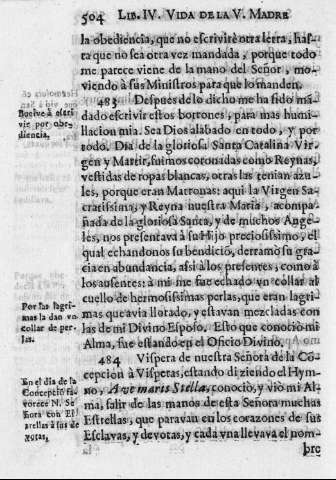 504 LIB. IV. VIDA DE LA V. MADRE
la obediencia, que no escrivirè otra letra, has-
ta que no sea otra vez mandada, porque todo
me parece viene de la mano del Señor, mo-
viendo à sus Ministros para que lo manden.
Buelve à escri-
vir por obe-
diencia.
483 Despues de lo dicho me ha sido mã-
dado escrivir estos borrones, para mas humi-
llacion mia. Sea Dios alabado en todo, y por
todo. Dia de la gloriosa Santa Catalina Vir-
gen y Martir, fuimos coronadas como Reynas,
vestidas de ropas blancas, otras las tenian azu-
les, porque eran Matronas: aqui la Virgen Sa-
cratissima, y Reyna nuestra Maria, acompa-
ñada de la gloriosa Santa, y de muchos Ange-
les, nos presentava à su Hijo preciosissimo, el
qual echandonos su bendiciõ, derramò su gra-
cia en abundancia, assi à los presentes, como à
los ausentes: à mi me fue echado vn collar al
cuello de hermosissimas perlas, que eran lagri-
mas que avia llorado, y estavan mezcladas con
las de mi Divino Esposo. Esto que conociò mi
Alma, fue estando en el Oficio Divino.
Por las lagri-
mas la dan vn
collar de per-
las.
484 Vispera de nuestra Señora de la Cõ-
cepcion à Vispetas, estando diziendo el Hym-
no, Ave maris Stella, conociò, y viò mi Al-
ma, salir de las manos de esta Señora muchas
Estrellas, que paravan en los corazones de sus
Esclavas, y devotas, y cada vna llevava el nom-
En el dia de la
Concepcion fa-
vorece N. Se
ñora con Es
trellas à sus de
votas.
bre